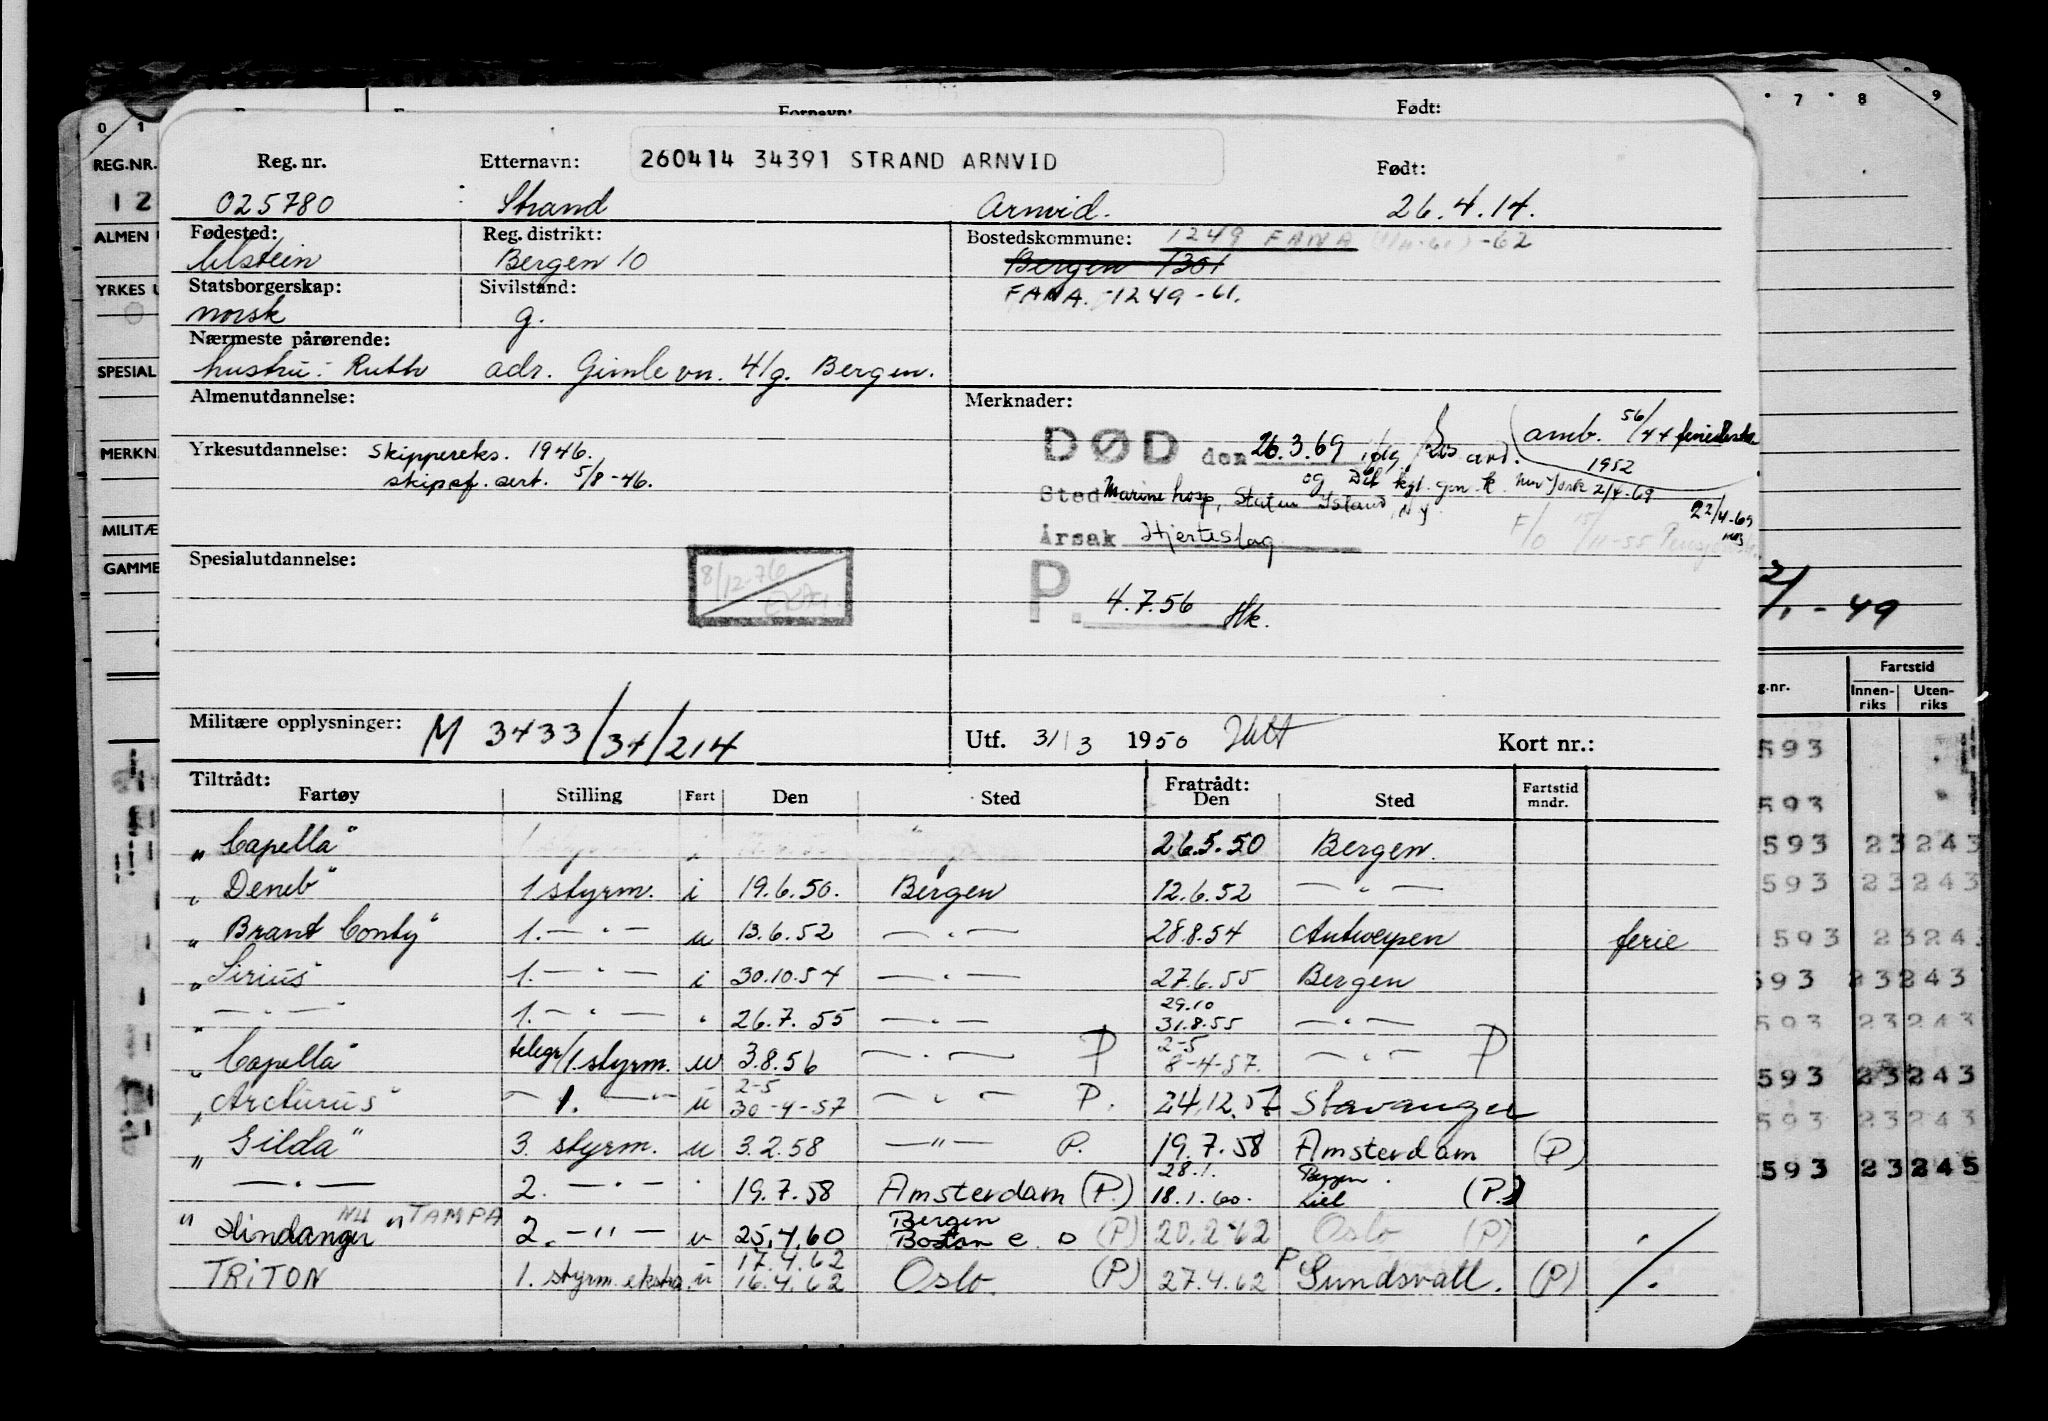 Fornavn: Født:
0 1 7 8 9
260414 34391 STRAND ARNVID
REG.NR. Reg. nr. Etternavn: Født:
12 025780 Strand Arnvid. 26.4.14.
ALMEN Fødested: Reg. distrikt: Bostedskommune: 1249 FANA -62
Ulstein Bergen 10 Bergen 1301
YRKES Statsborgerskap: Sivilstand: FANA. -1249-61.
norsk g.
Nærmeste pårørende:
SPESIAL hustru: Ruth adr. Gimle vn. 4/g. Bergen.
Almenutdannelse: Merknader:
amb. 56/44
1952
MERKN. Yrkesutdannelse: Skippereks. 1946. DØD den 26.3.69
skipsf. sert. 5/8-46. og Det kgl. gen. k. New York 2/4-69
Sted Marine hosp, Staten Island, NY 22/4-69
MILITÆ Årsak Hjerteslag F/O 15/11-55
GAMME Spesialutdannelse: 8/12-76
P. 4.7.56 Hk.
2/1-49
Militære opplysninger: M 3433/34/214 Utf. 31/3 1950 Kort nr.:
g.nr. Fartstid
Innen-riks Uten-riks
Tiltrådt: Fratrådt:
Fartøy Stilling Fart Den Sted Den Sted Fartstid mndr.
593
„Capella" 26.5.50 Bergen.
593
„Deneb" 1 styrm. i 19.6.50. Bergen 12.6.52 — " —
593 23 243
593 23 243
„Brant County" 1. — " — u 13.6.52 — " — 28.8.54 Antwerpen ferie
593 23 243
„Sirius" 1. — " — i 30.10.54 — " — 27.6.55 Bergen
593 23 243
29.10
„ — " — " 1. — " — " 26.7.55 — " — 31.8.55 — " —
593 23 243
2-5
„Capella" telegr/1. styrm. u 3.8.56 — " — P 8-4-57. — " — P
593 23 243
2-5
„Arcturus" — 1. — " u 30-4-57 — " — P. 24.12.57 Stavanger
593 23 243
„Gilda" 3. styrm. u 3.2.58 — " — P. 19.7.58 Amsterdam (P)
593 23 245
28.1. Bergen.
— " — 2. — " — " 19.7.58 Amsterdam (P.) 18.1.60. Kiel (P.)
NU "TAMPA Bergen
"Hindanger" 2. — " — u 25.4.60 Boston e. o (P) 20.2-62 Oslo (P)
17.4.62
TRITON 1. styrm. ekstra. u 16.4.62 Oslo. (P) 27.4.62 P Sundsvall. (P)